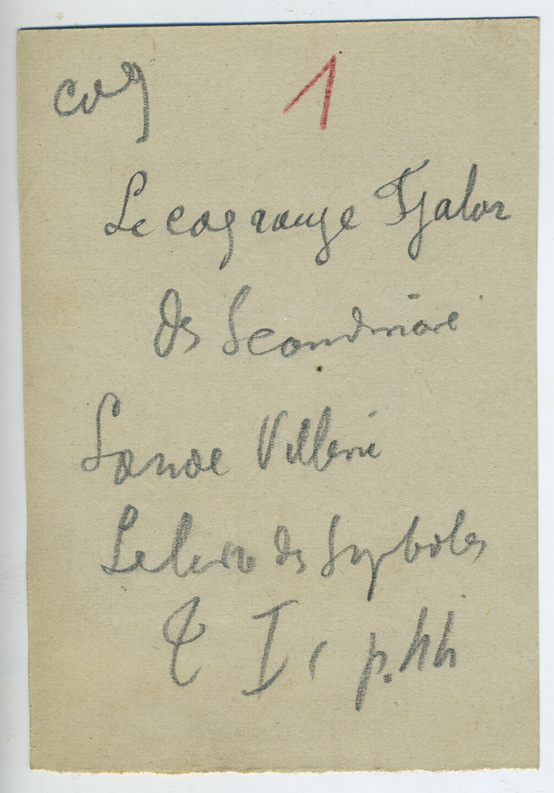 coq 1
Le coq rouge Fjalar
des Scandinave
Lanoe Villene
Le livre des Symboles
T I, p. 44